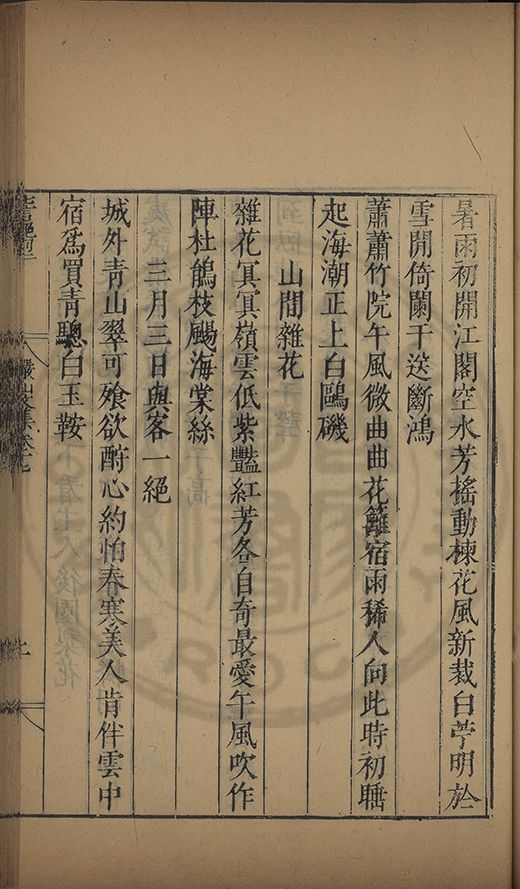 暑雨初開江閣空水芳搖動楝花風新裁白苧明於
雪閒倚闌干送斷鴻
蕭蕭竹院午風微曲曲花籬宿雨稀人向此時初睡
起海潮正上白鷗磯
山間雜花
雜花冥冥嶺雲低紫豔紅芳各自奇最愛午風吹作
陣杜鵑枝颺海棠絲
三月三日與客一絕
城外青山翠可飱欲酧心約怕春寒美人肯伴雲中
宿爲買青驄白玉鞍